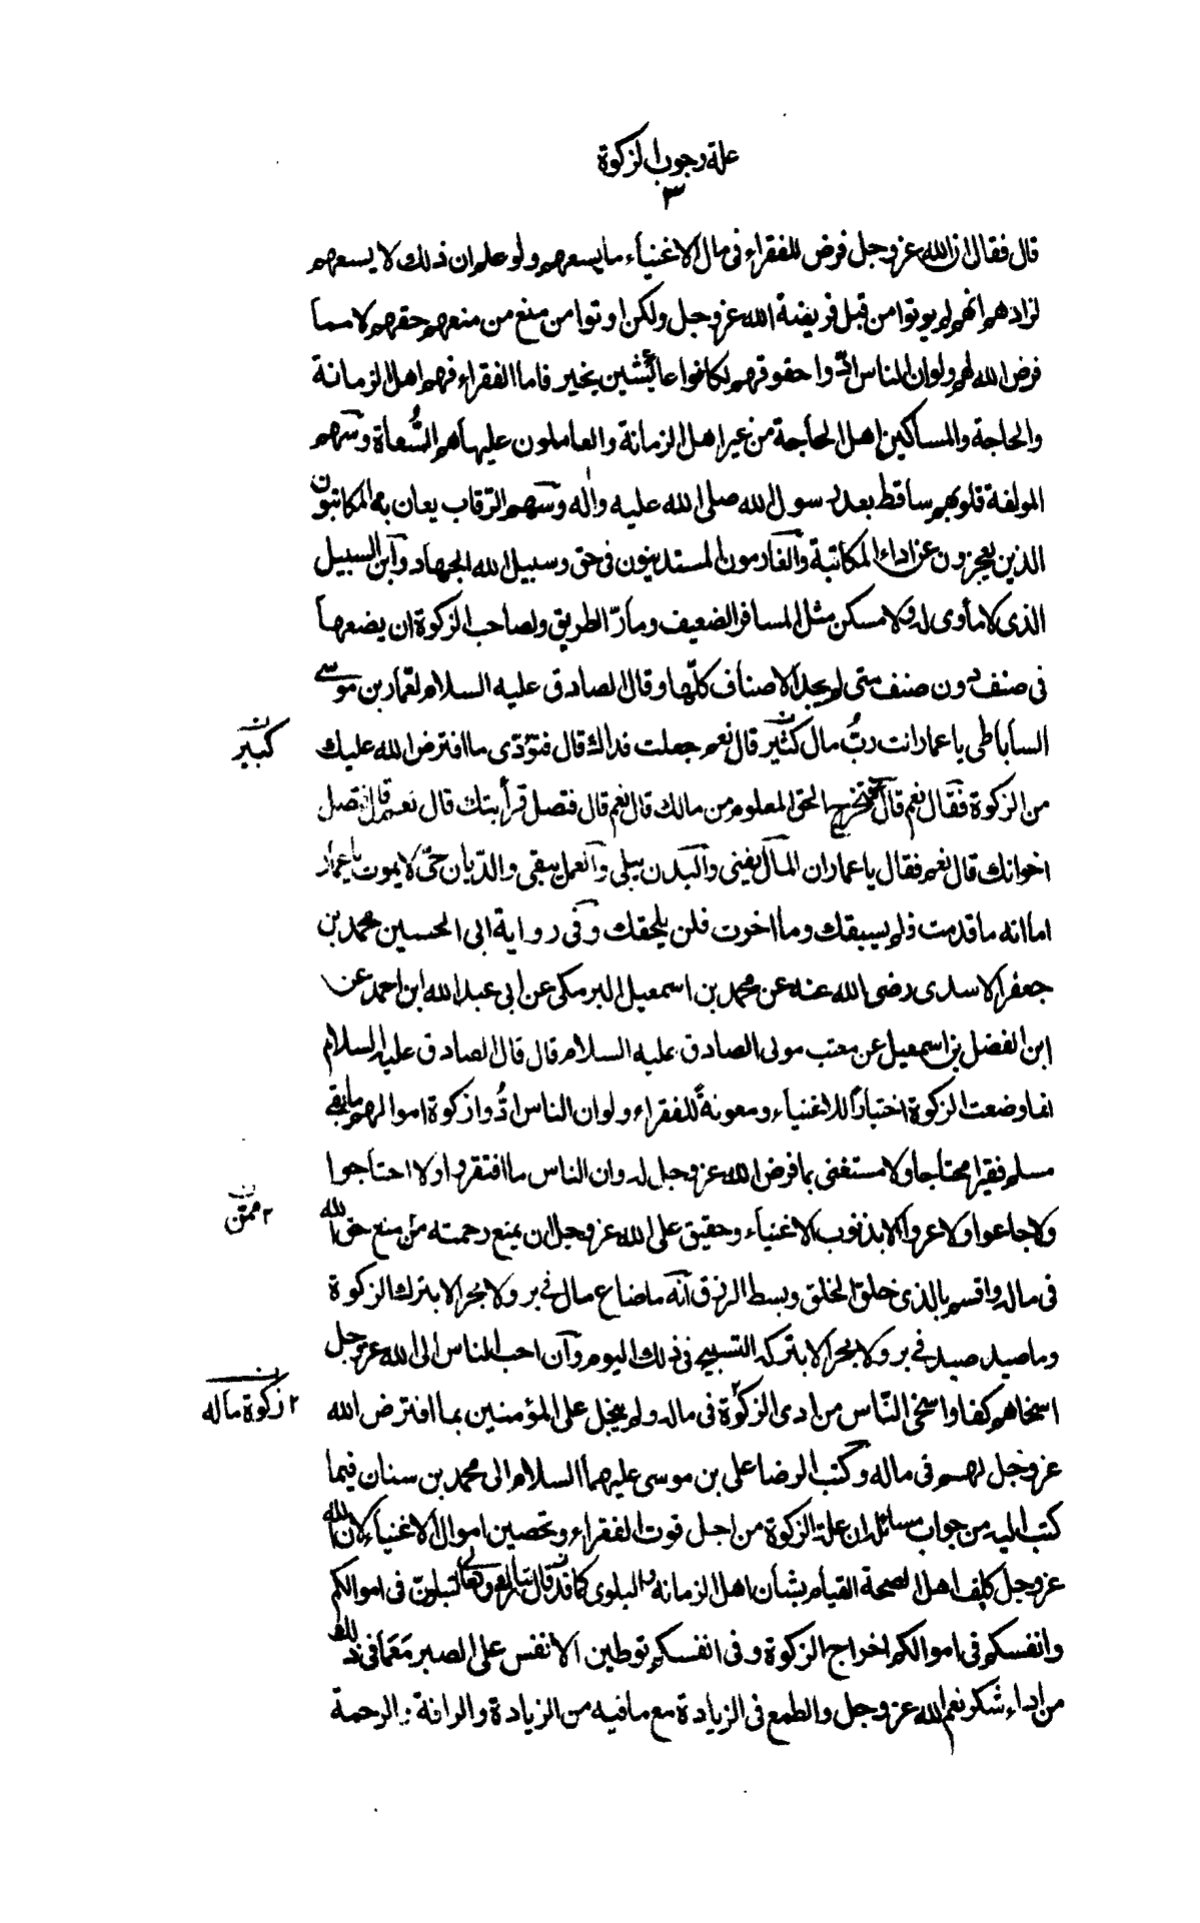 علة وجوب الزكوة
٣
قال فقال ان الله عز وجل فرض للفقراء فى مال الاغنياء ما يسعهم ولو علم ان ذلك لا يسعهم
لزادهم انهم لم يوتوا من قبل فريضة الله عز وجل ولكن اوتوا من منع من منعهم حقهم لا مما
فرض الله لهم ولو ان الناس ادّوا حقوقهم لكانوا عائشين بخير فاما الفقراء فهم اهل الزمانة
والحاجة والمساكين اهل الحاجة من غير اهل الزمانة والعاملون عليها هم السُّعاة وسهم
المولفة قلوبهم ساقط بعد رسول الله صلى الله عليه واله وسهم الرّقاب يعان به المكاتبون
الذين يعجزون عن اداء المكاتبة والغارمون المستدينون فى حق وسبيل الله الجهاد وابن السبيل
الذى لا مأوى له ولا مسكن مثل المسافر الضعيف ومارّ الطريق ولصاحب الزكوة ان يضعها
فى صنف دون صنف متى لم يجد الاصناف كلّها وقال الصادق عليه السلام لعمّار بن موسى
الساباطى يا عمار انت ربُّ مال كثير قال نعم جعلت فداك قال فتؤدّى ما افترض الله عليك
كبير
من الزكوة فقال نعم قال فتخرج الحق المعلوم من مالك قال نعم قال فتصل قرابتك قال نعم قال فتصل
اخوانك قال نعم فقال يا عمار ان المال يفنى والبدن يبلى والعمل يبقى والدّيان حىّ لا يموت يا عمار
اما انه ما قدمت فلم يسبقك وما اخرت فلن يلحقك وفى رواية ابى الحسين محمد بن
جعفر الاسدى رضى الله عنه عن محمد بن اسمعيل البرمكى عن ابى عبد الله ابن احمد عن
ابن الفضل بن اسمعيل عن معتب مولى الصادق عليه السلام قال قال الصادق عليه السلام
انما وضعت الزكوة اختباراً للاغنياء ومعونةً للفقراء ولو ان الناس ادُّوا زكوة اموالهم ما بقى
مسلم فقيرا محتاجا ولا ستغنى بما فرض الله عز وجل له وان الناس ما افتقروا ولا احتاجوا
ولا جاعوا ولا عروا الا بذنوب الاغنياء وحقيق على الله عز وجل ان يمنع رحمته من منع حق الله
٢ ممّن
فى ماله واقسم بالذى خلق الخلق وبسط الرزق انّه ما ضاع مال فى بر ولا بحر الا بترك الزكوة
وما صيد صيد فى بر ولا بحر الا بتركه التسبيح فى ذلك اليوم وان احب الناس الى الله عز وجل
اسخاهم كفا واسخى النّاس من ادى الزكوة فى ماله ولم يبخل على المؤمنين بما افترض الله
٢ زكوة ماله
عز وجل لهم فى ماله وكتب الرضا على بن موسى عليهما السلام الى محمد بن سنان فيما
كتب اليه من جواب مسائله ان علة الزكوة من اجل قوت الفقراء وتحصين اموال الاغنياء لان الله
عز وجل كلف اهل الصحة القيام بشأن اهل الزمانه والبلوى كما قال تبارك وتعالى لتبلونّ فى اموالكم
وانفسكم فى اموالكم اخراج الزكوة وفى انفسكم توطين الانفس على الصبر مع ما فى ذلك
من اداء شكر نعم الله عز وجل والطمع فى الزيادة مع ما فيه من الزيادة والرافة والرحمة